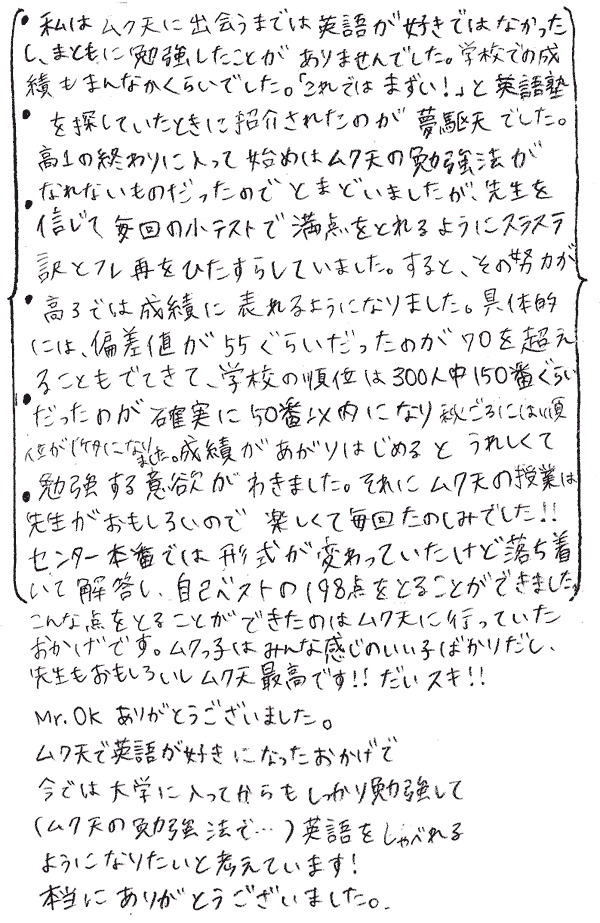 私はムク天に出会うまでは英語が好きではなかった
し、まともに勉強したことがありませんでした。学校での成
績もまんなかくらいでした。「これではまずい!」と英語塾
を探していたときに紹介されたのが夢駆天でした。
高1の終わりに入って始めはムク天の勉強法が
なれないものだったのでとまどいましたが、先生を
信じて毎回の小テストで満点をとれるようにスラステ
訳とフレ再をひたすらしていました。すると、その努力が
高3では成績に表れるようになりました。具体的
には、偏差値が55ぐらいだったのが70を超え
ることもでてきて、学校の順位は300人中150番ぐらい
だったのが確実に50番以内になり秋ごろには順
位が1ケタになりました。成績があがりはじめるとうれしくて
勉強する意欲がわきました。それにムク天の授業は
先生がおもしろいので楽しくて毎回たのしみでした!!
センター本番では形式が変わっていたけど落ち着
いて解答し、自己ベストの198点をとることができました。
こんな点をとることができたのはムク天に行っていた
おかげです。ムクっ子はみんな感じのいい子ばかりだし、
先生もおもしろいしムク天最高です!!だいスキ!!
Mr.OKありがとうございました。
ムク天で英語が好きになったおかげで
今では大学に入ってからもしっかり勉強して
(ムク天の勉強法で…)英語をしゃべれる
ようになりたいと考えています!
本当にありがとうございました。